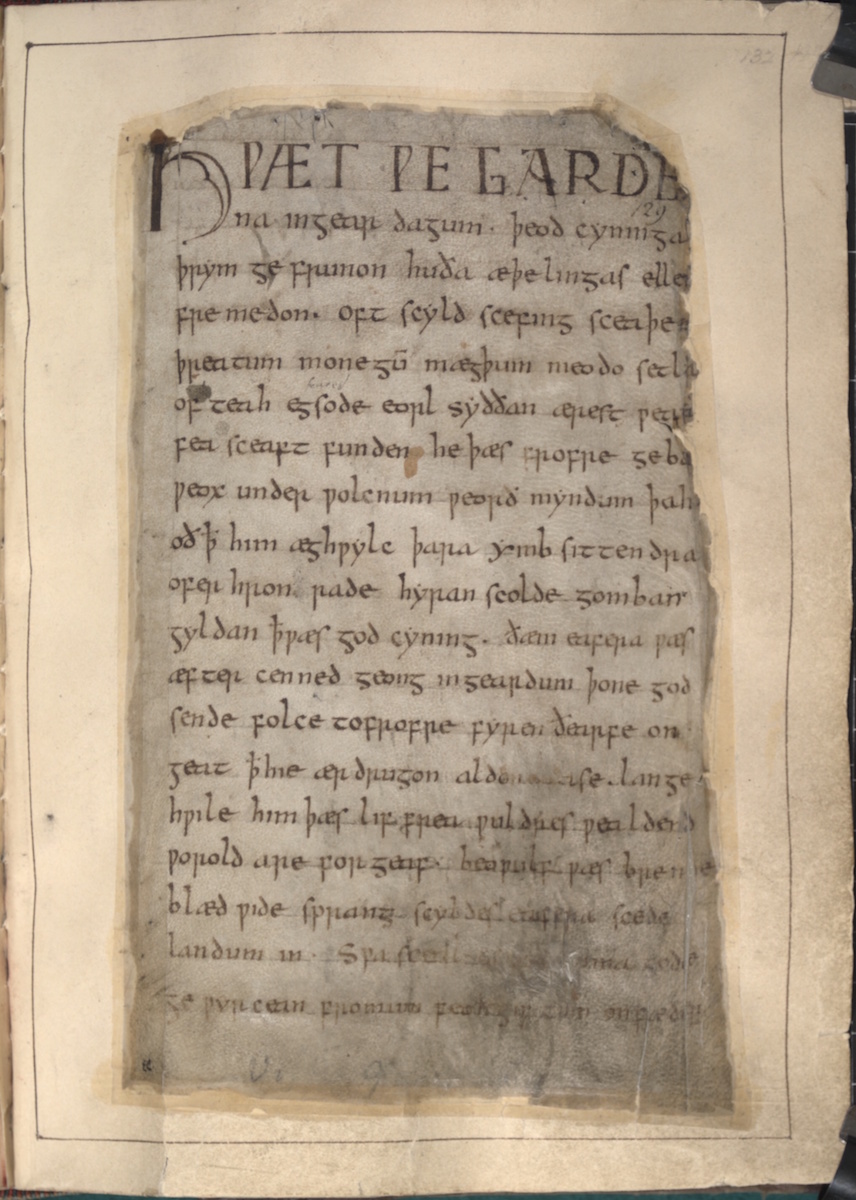 HǷÆT ǷE GARDE
na ingear dagum. þeod cyninga
þrym ge frunon huða æþelingas elle
fremedon. oft scyld scefing sceaþe
þreatum monegū mægþum meodo setla
ofteah egsode eorl syððan ærest ƿear
fea sceaft funden he þæs frofre geba
ƿeox under ƿolcnum ƿeorð myndum þah
oð ꝥ him æghƿylc þara ymb sittendra
ofer hron rade hyran scolde gomban
gyldan ꝥ ƿæs god cyning. ðæm eafera ƿæs
æfter cenned geong ingeardum þone god
sende folce tofrofre fyren ðearfe on
geat ꝥ hie ær drugon aldor ase. lange
hƿile him þæs lif frea ƿuldres ƿealdend
ƿorold are forgeaf. beoƿulf ƿæs breme
blæd ƿide sprang scyldes eafera scede
landum in. Sƿa sceal gode
ge ƿyrcean fromum feohgiftum onfæder